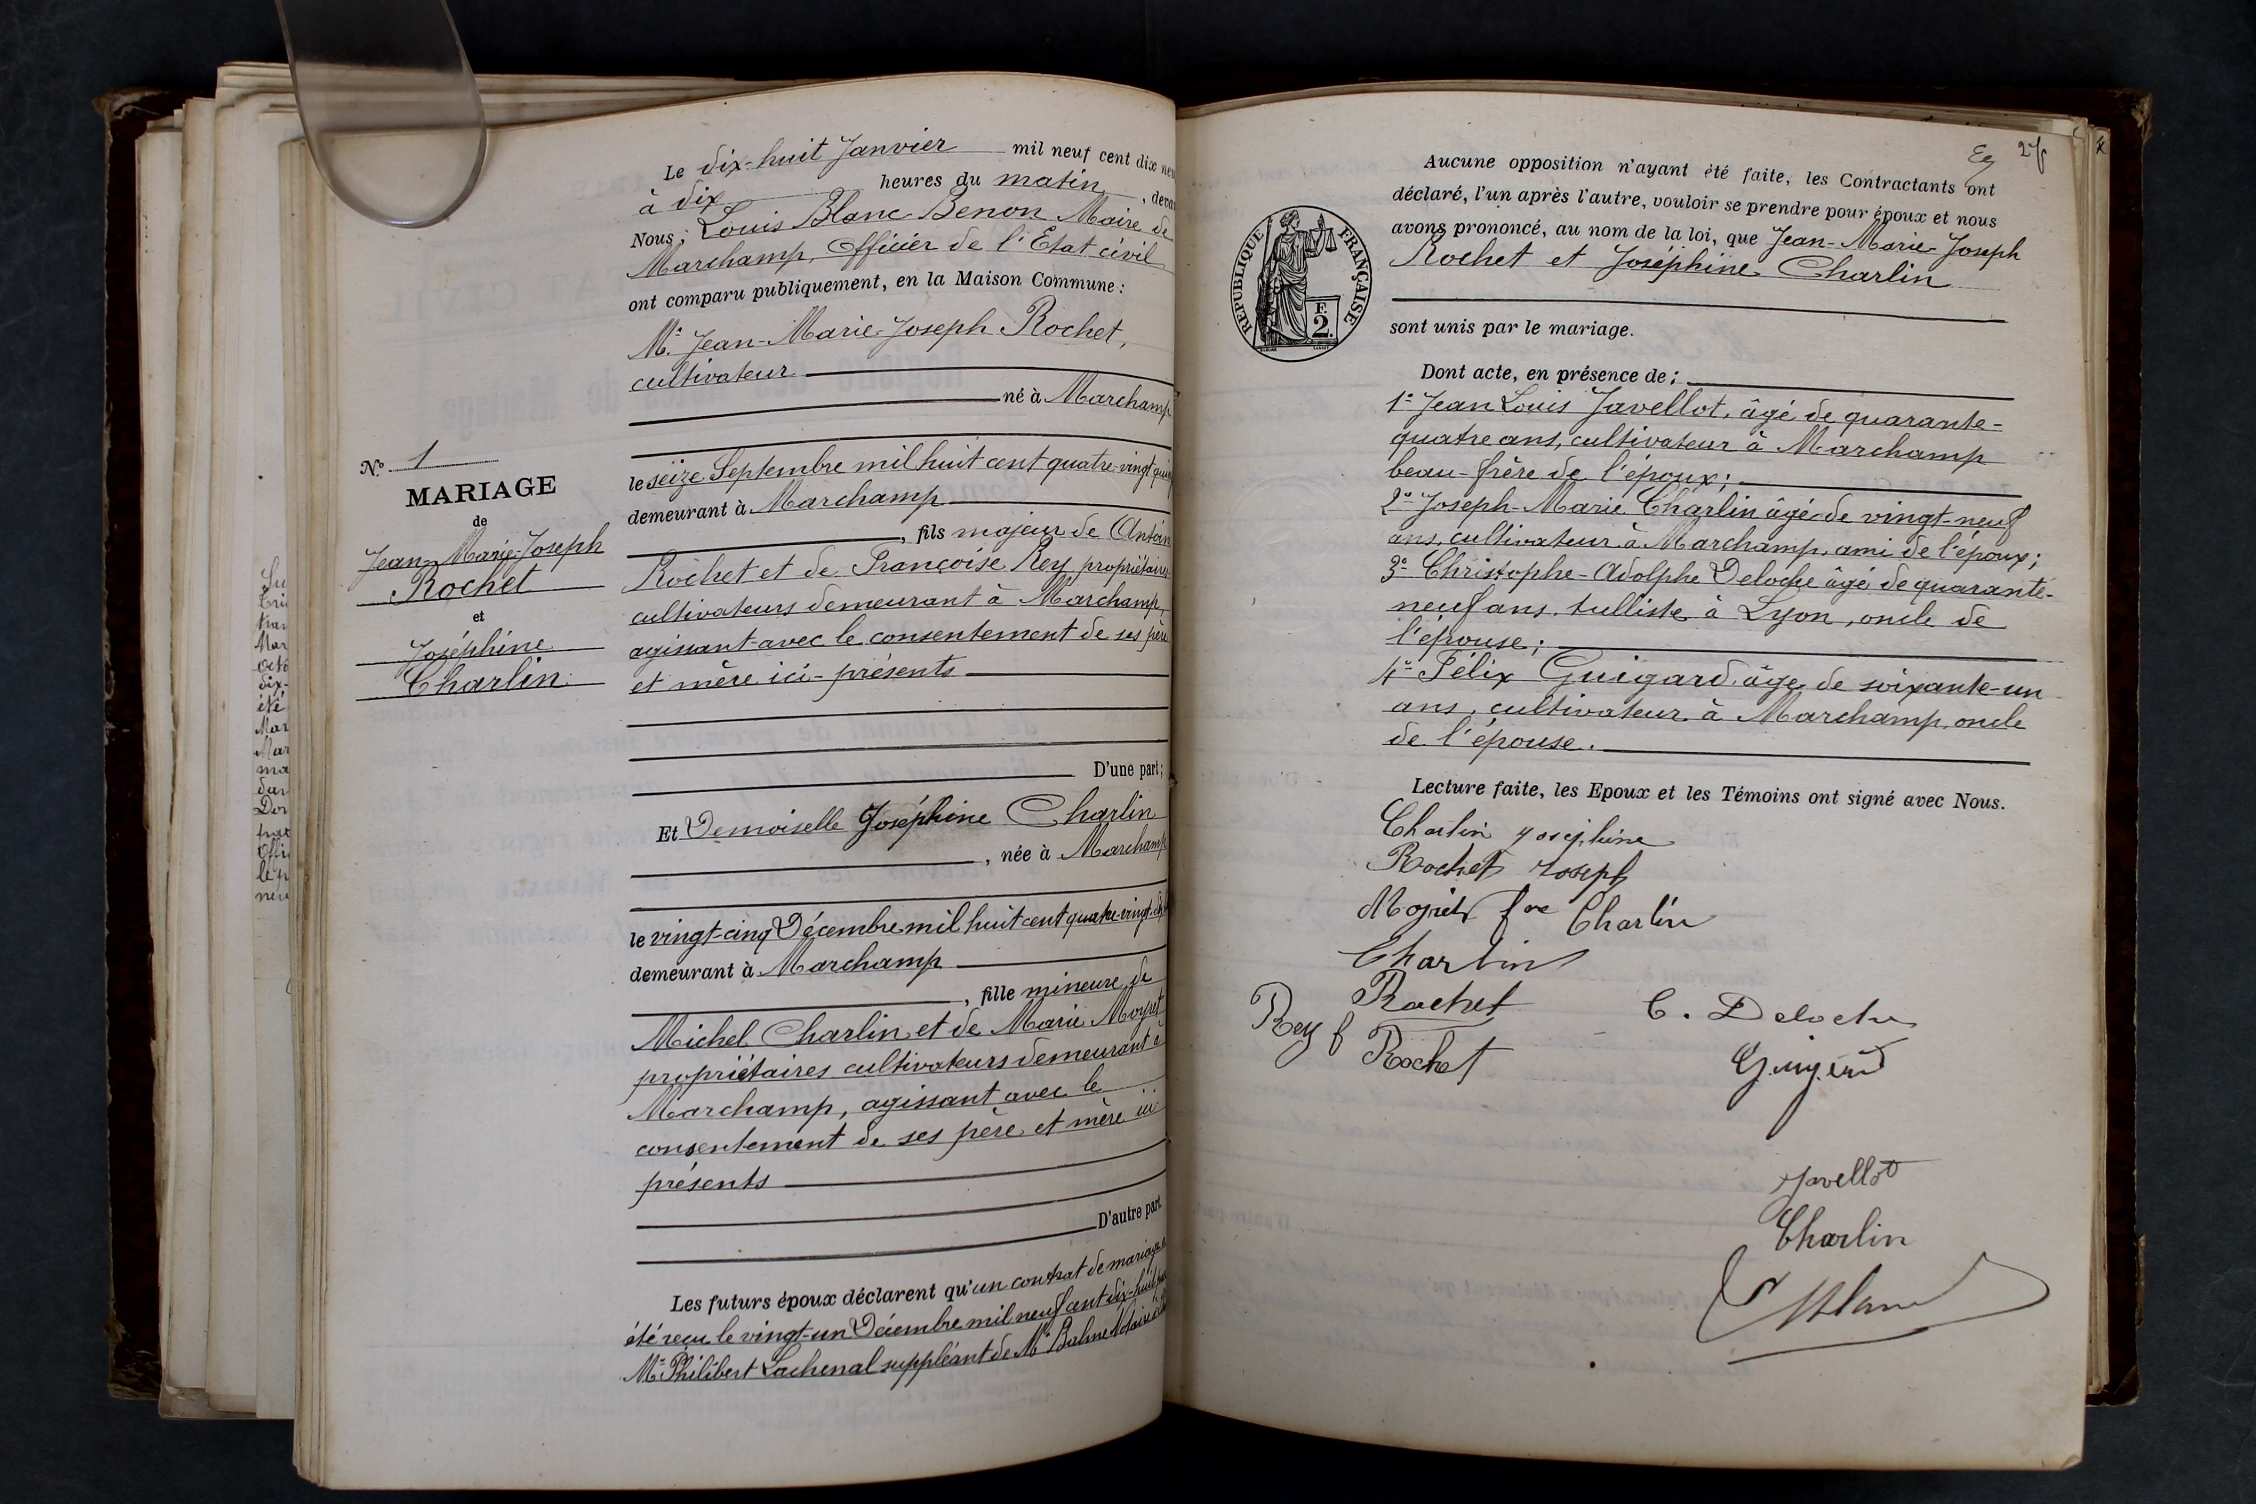 Le dix-huit Janvier mil neuf cent dix neu
à dix heures du matin, deva
Nous; Louis Blanc-Benon Maire de
Marchamp, Officier de l'Etat civil
ont comparu publiquement, en la Maison Commune:
Mr. Jean-Marie-Joseph Rochet,
cultivateur
né à Marchamp
le seize Septembre mil huit cent quatre-vingt
demeurant à Marchamp
, fils majeur de Antoin
Rochet et de Françoise Rey propriétaires
cultivateurs demeurant à Marchamp,
agissant avec le consentement de ses père
et mère ici-présents
D'une part;
No 1
MARIAGE
de
Jean-Marie-Joseph
Rochet
et
Joséphine
Charlin
Et Demoiselle Joséphine Charlin
, née à Marchamp
le vingt-cinq Décembre mil huit cent quatre-vingt
demeurant à Marchamp
, fille mineure de
Michel Charlin et de Marie Moyret
propriétaires cultivateurs demeurant à
Marchamp, agissant avec le
consentement de ses père et mère ici
présents
D'autre part
Les futurs époux déclarent qu'un contrat de mariage a
été reçu le vingt-un Décembre mil neuf cent dix-huit
Me Philibert Lachenal suppléant de Me Balme Notaire
Aucune opposition n'ayant été faite, les Contractants ont
déclaré, l'un après l'autre, vouloir se prendre pour époux et nous
avons prononcé, au nom de la loi, que Jean-Marie-Joseph
Rochet et Joséphine Charlin
sont unis par le mariage.
RÉPUBLIQUE FRANÇAISE
F.
2.
Dont acte, en présence de;
1o Jean Louis Javellot, âgé de quarante-
quatre ans, cultivateur à Marchamp
beau-frère de l'époux;
2o Joseph-Marie Charlin âgé de vingt-neuf
ans, cultivateur à Marchamp, ami de l'époux;
3o Christophe-Adolphe Deloche âgé de quarante-
neuf ans, tulliste à Lyon, oncle de
l'épouse;
4o Félix Guigard âgé de soixante-un
ans, cultivateur à Marchamp, oncle
de l'épouse.
Lecture faite, les Epoux et les Témoins ont signé avec Nous.
Charlin Joséphine
Rochet Joseph
Moyret fme Charlin
Charlin
Rochet
C. Deloche
Rey f Rochet
Guigard
Javellot
Charlin